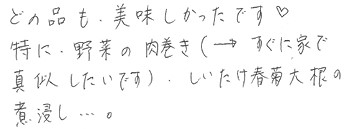 どの品も、美味しかったです♡
特に、野菜の肉巻き(→すぐに家で
真似したいです)、しいたけ春菊大根の
煮浸し…。